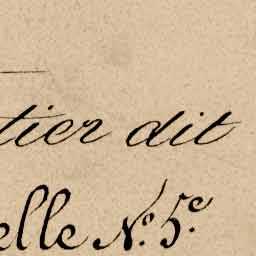 tier dit
elle N.º 5.e